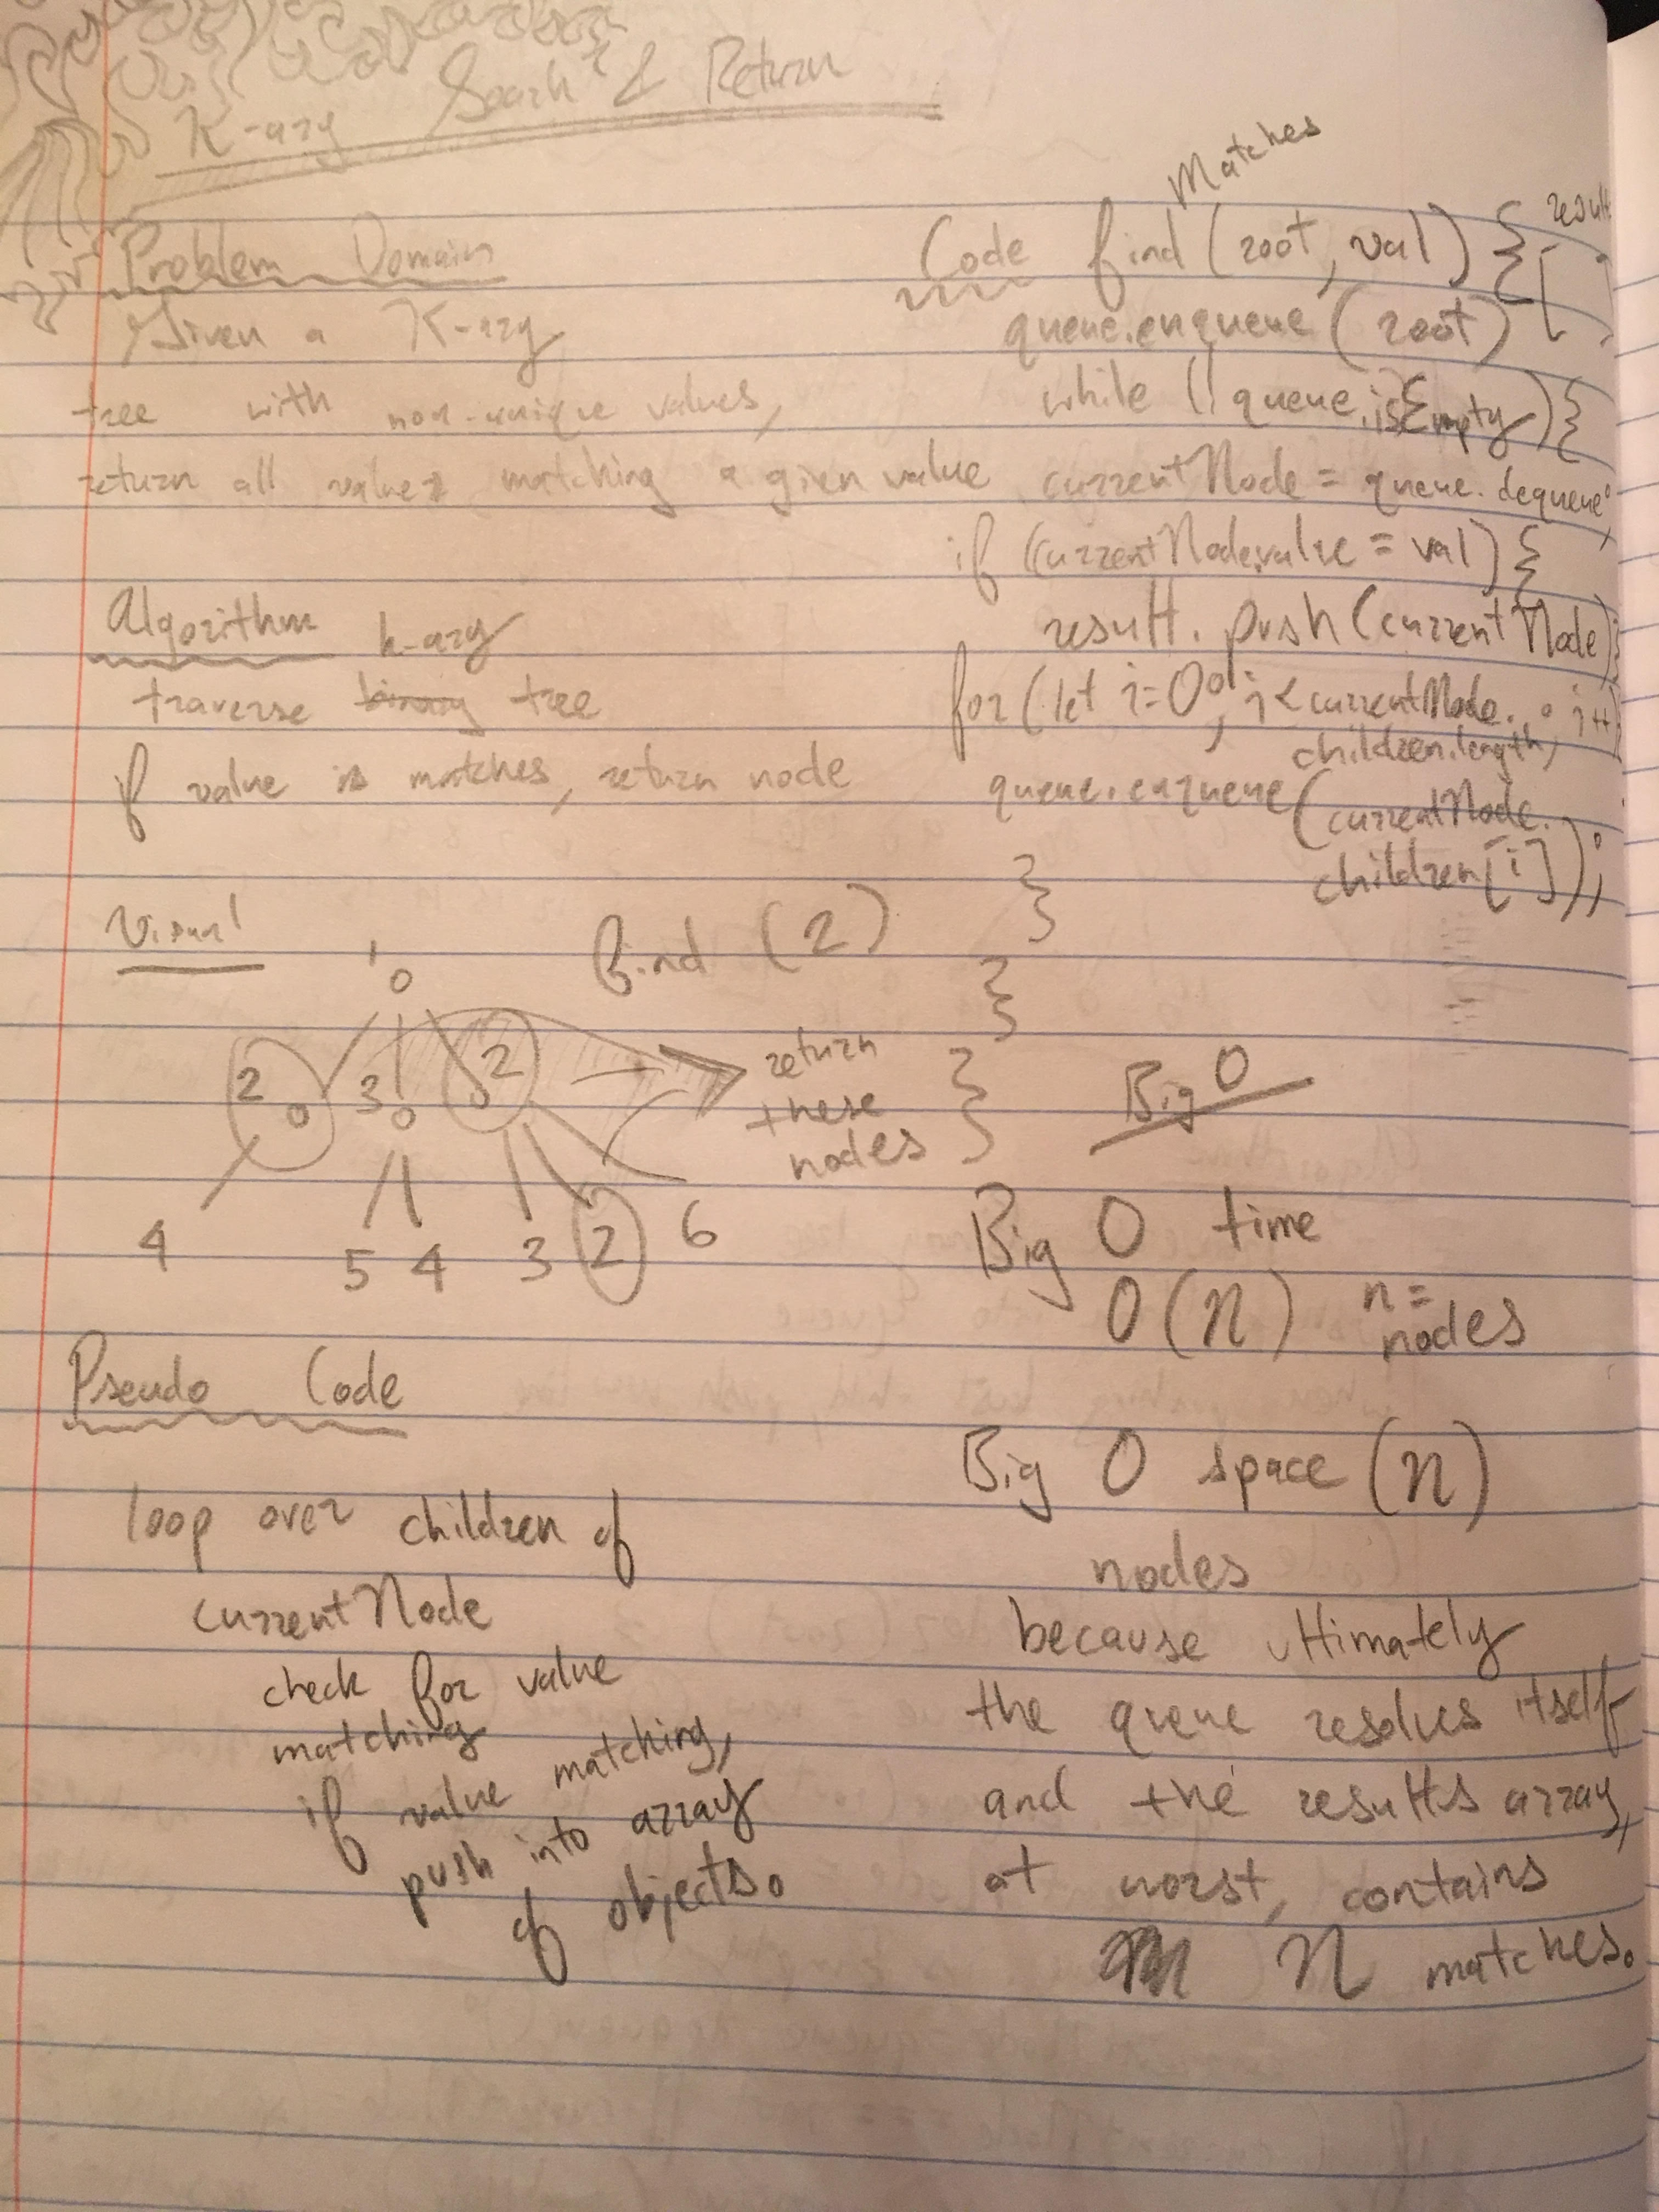 K-ary Search & Return
Problem Domain
Given a K-ary
tree with non-unique values,
return all values matching a given value
Algorithm k-ary
traverse binary tree
if value is matches, return node
Visual
find (2)
1
2 3 2
return
these
nodes
4 5 4 3 2 6
Pseudo Code
loop over children of
currentNode
check for value
matching
if value matching,
push into array
of objects.
Matches
Code find (root, val) { result
queue.enqueue (root) [ ]
while (! queue.isEmpty) {
currentNode = queue.dequeue;
if (currentNode.value = val) {
result.push(currentNode)}
for (let i=0; i < currentNode. ; i++)
children.length
queue.enqueue (currentNode.
children[i]);
}
}
}
Big O
Big O time
O(n) n =
nodes
Big O space (n)
nodes
because ultimately
the queue resolves itself
and the results array,
at worst, contains
n matches.